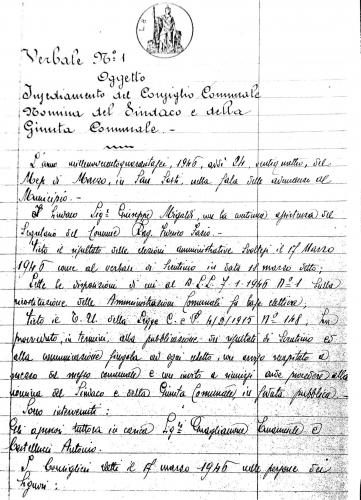 Verbale N° 1
Oggetto
Insediamento del Consiglio Comunale
Nomina del Sindaco e della
Giunta Comunale. -
L'anno millenovecentoquarantasei, 1946, addì 24, ventiquattro, del
Mese di Marzo, in San Sosti, nella sala delle adunanze del
Municipio. -
Il Sindaco Sig. Giuseppe con la continua assistenza del
Segretario del Comune Rag.
Visto il risultato delle elezioni amministrative svoltesi il 17 Marzo
1946 come al verbale di scrutinio in data 18 marzo detto;
Lette le disposizioni di cui al D.L.L. 7-1-1946 N° 1 sulla
ricostituzione delle Amministrazioni Comunali su base elettiva.
Visto il T.U. della Legge C. e P. 4/2/1915 N° 148, ha
provveduto, in termini, alla pubblicazione dei risultati di scrutinio ed
alla comunicazione singola ad ogni eletto, con avviso recapitato a
mezzo del messo comunale e con invito a riunirsi onde procedere alla
nomina del Sindaco e della Giunta Comunale, in seduta pubblica. -
Sono intervenuti:
Gli assessori tuttora in carica Sigri Quaglianone Emanuele e
Castellucci Antonio. -
I Consiglieri eletti il 17 marzo 1946 nelle persone dei
Signori: